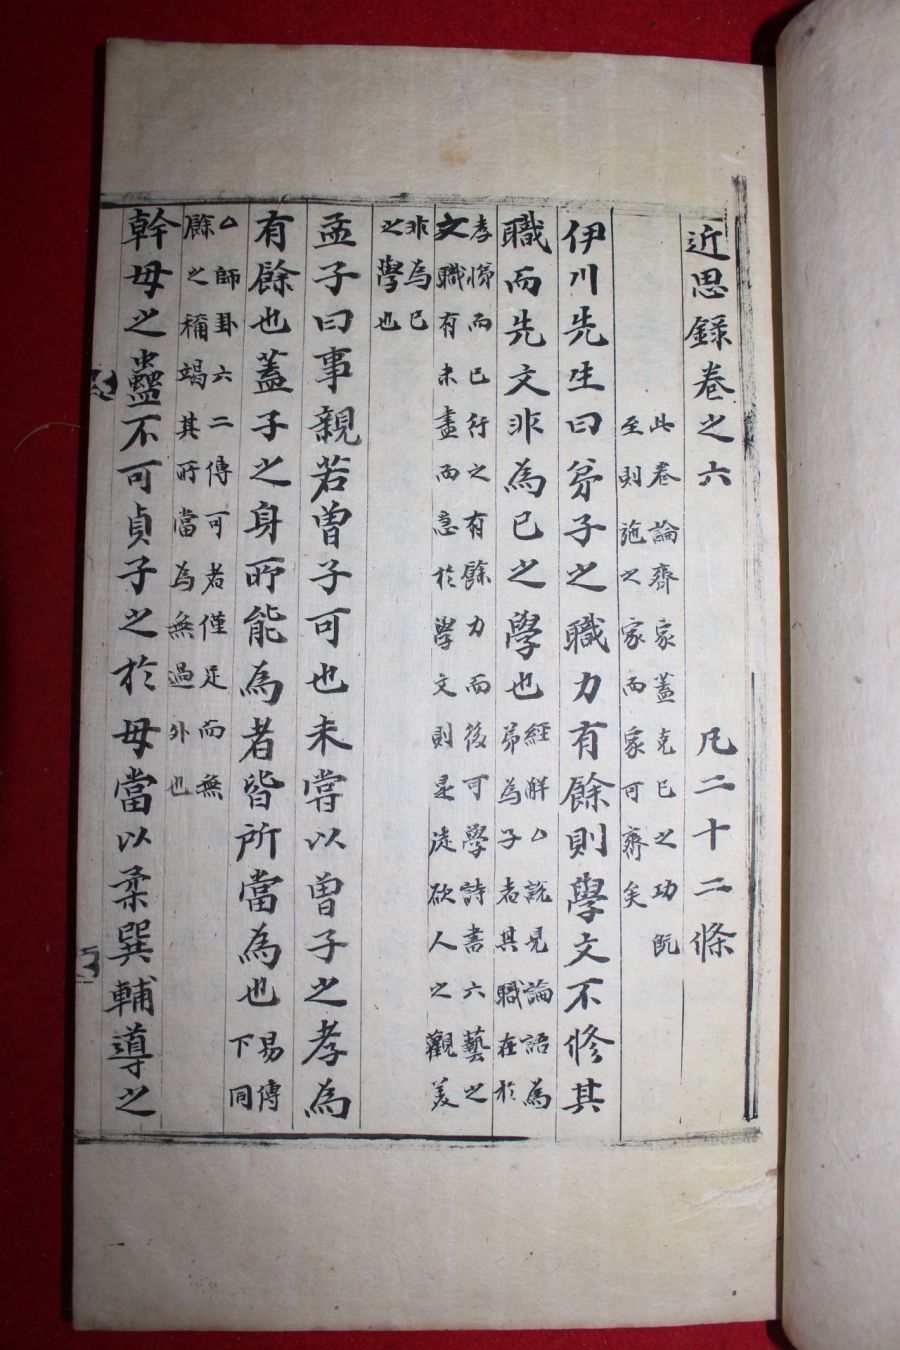 近思録卷之六 凡二十二條
此卷論齊家盖克己之功既
至則施之家而家可齊矣
伊川先生曰弟子之職力有餘則學文不修其
職而先文非為己之學也
經解△説見論語為
弟為子者其職在於
孝悌而已行之有餘力而後可學詩書六藝之
文職有未盡而急於學文則是徒欲人之觀美
非為己
之學也
孟子曰事親若曽子可也未嘗以曽子之孝為
有餘也盖子之身所能為者皆所當為也
易傳
下同
△師卦六二傳可者僅足而無
餘之稱竭其所當為無過外也
幹母之蠱不可貞子之於母當以柔巽輔導之